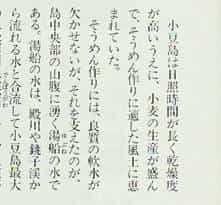 小豆島は日照時間が長く乾燥度
が高いうえに、小麦の生産が盛ん
で、そうめん作りに適した風土に恵
まれていた。
そうめん作りには、良質の軟水が
欠かせないが、それを支えたのが、
島中央部の山腹に湧く湯船の水で
ある。湯船の水は、殿川や銚子渓か
ら流れる水と合流して小豆島最大